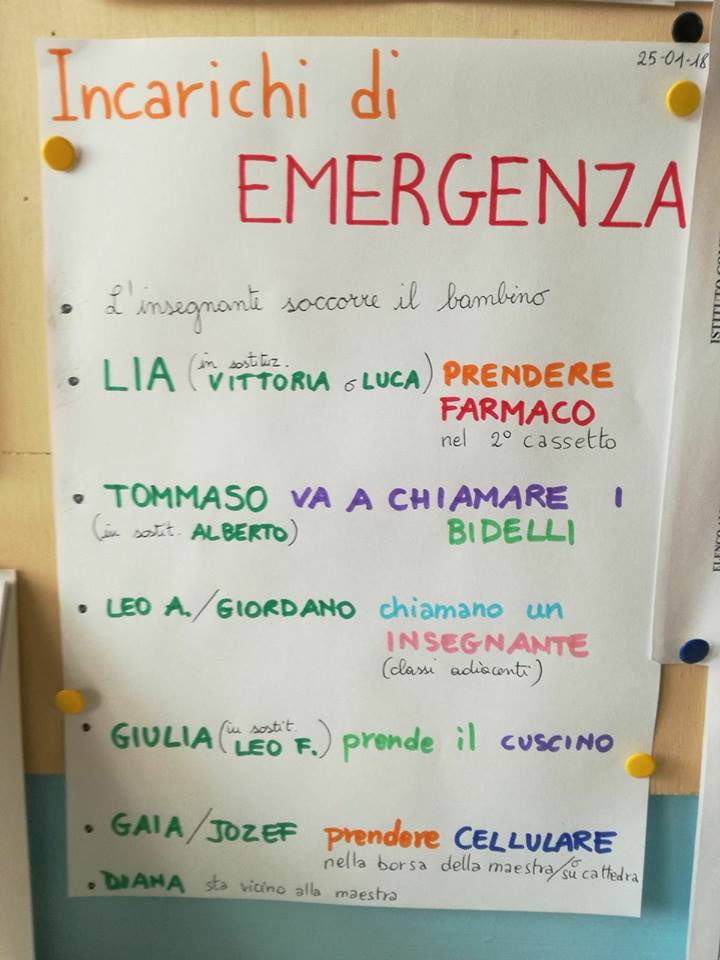 25-01-18
Incarichi di
EMERGENZA
• L'insegnante soccorre il bambino
• LIA (in sostituz. VITTORIA o LUCA) PRENDERE
FARMACO
nel 2° cassetto
• TOMMASO VA A CHIAMARE I
(in sostit. ALBERTO) BIDELLI
• LEO A./GIORDANO chiamano un
INSEGNANTE
(classi adiacenti)
• GIULIA (in sostit. LEO F.) prende il CUSCINO
• GAIA/JOZEF prendere CELLULARE
nella borsa della maestra/o su cattedra
• DIANA sta vicino alla maestra
ISTITUTO